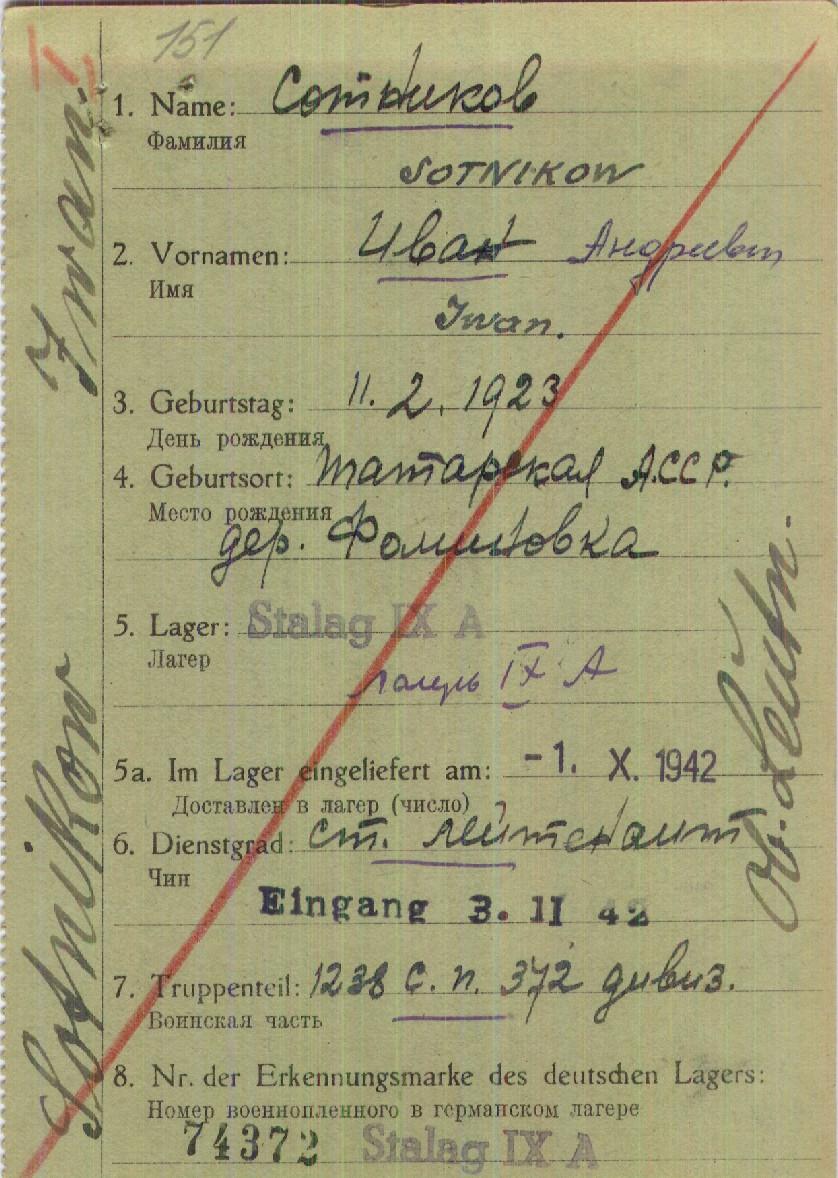 151
1. Name: Сотников
Фамилия
SOTNIKOW
2. Vornamen: Иван Андреевич
Имя
Iwan.
3. Geburtstag: 11. 2. 1923
День рождения
4. Geburtsort: Татарская АССР.
Место рождения
дер. Фомиловка
5. Lager: Stalag IX A
Лагер
лагерь IX A
5a. Im Lager eingeliefert am: -1. X. 1942
Доставлен в лагер (число)
6. Dienstgrad: ст. лейтенант
Чин
Eingang 3. II 42
7. Truppenteil: 1238 с. п. 372 дивиз.
Воинская часть
8. Nr. der Erkennungsmarke des deutschen Lagers:
Номер военнопленного в германском лагере
74372 Stalag IX A
Sotnikow Iwan.
Ob. Leutn.